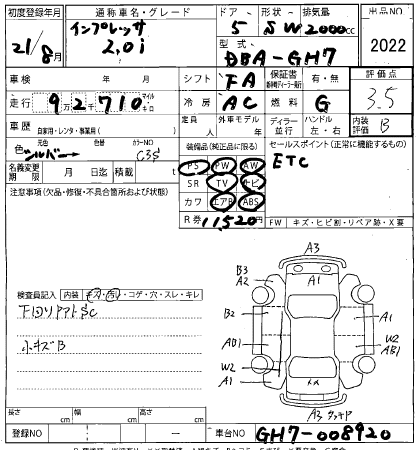 初度登録年月 通称車名・グレード ドア 形状 排気量 出品NO
21/8月 インプレッサ 2.0i 5 SW 2000cc 2022
型式 DBA-GH7
車検 年 月 シフト FA 保証書 有・無 評価点
走行 9万2千710 マイル キロ 冷房 AC 燃料 G 3.5
車歴 自家用・レンタ・事業用( ) 定員 人 外車モデル 年 ディーラー 並行 ハンドル 左・右 内装評価 B
色 元色 シルバー 色替 カラーNO C3S 装備品(純正品に限る) セールスポイント(正常に機能するもの)
名義変更期限 月 日迄 積載 t PS PW AW ETC
注意事項(欠品・修復・不具合箇所および状態) SR TV ナビ
カワ エアB ABS
R券 11,520円 FW キズ・ヒビ割・リペア跡・X要
A3
B3 A2 A1
検査員記入 内装 キズ・汚レ・コゲ・穴・スレ・キレ
下回りアトSC
B2 A1
小キズB
AB1 W2 AB1
W2
A1
A3
長さ cm 幅 cm 高さ cm
登録NO 車台NO GH7-008920